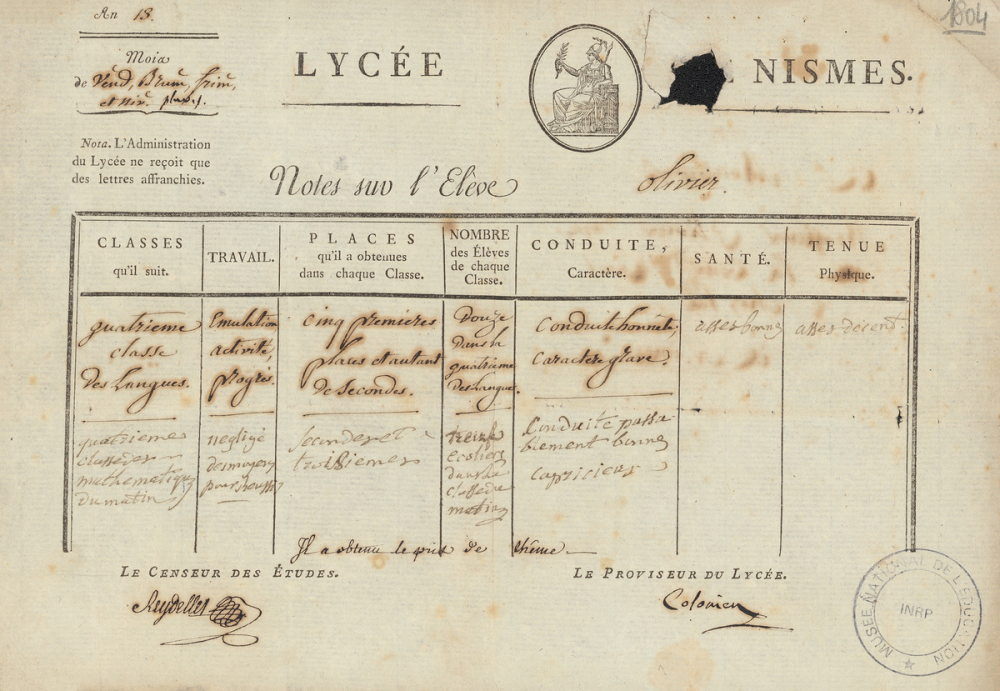 An 13.
1804
Mois
de Vend, Brum, frim,
et niv.
LYCÉE
NISMES.
Nota. L'Administration
du Lycée ne reçoit que
des lettres affranchies.
Notes sur l'Elève
olivier.
CLASSES
qu'il suit.
TRAVAIL.
PLACES
qu'il a obtenues
dans chaque Classe.
NOMBRE
des Élèves
de chaque
Classe.
CONDUITE,
Caractère.
SANTÉ.
TENUE
Physique.
quatrième
classe
des Langues.
Emulation
activité,
progrès.
cinq premières
places et autant
de secondes.
Douze
dans la
quatrieme
des Langues.
Conduite honnête;
caractère grave
asses bonne
asses décent.
quatrieme
classe des
mathematiques
du matin
negligé
des moyens
pour reussir
seconde et
troisiemes
treize
ecoliers
dans la
classe du
matin
Conduite passa
blement bonne
capricieux
Il a obtenu le prix de thême
LE CENSEUR DES ÉTUDES.
LE PROVISEUR DU LYCÉE.
Reydellet
MUSEE NATIONAL DE L'EDUCATION
INRP